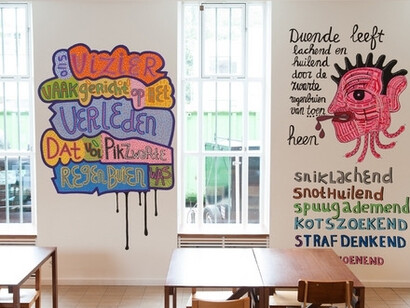 ons VIZIER
VAAK gericht op HET
VERLEDEN
DAT vol PikZwarte
REGEN BUIEN WAS
Duende leeft
lachend en
huilend
door de
zwarte
regenbuien
van toen
heen
sniklachend
snothuilend
spuugademend
KOTSZOEKEND
STRAFDENKEND
ZOENEND